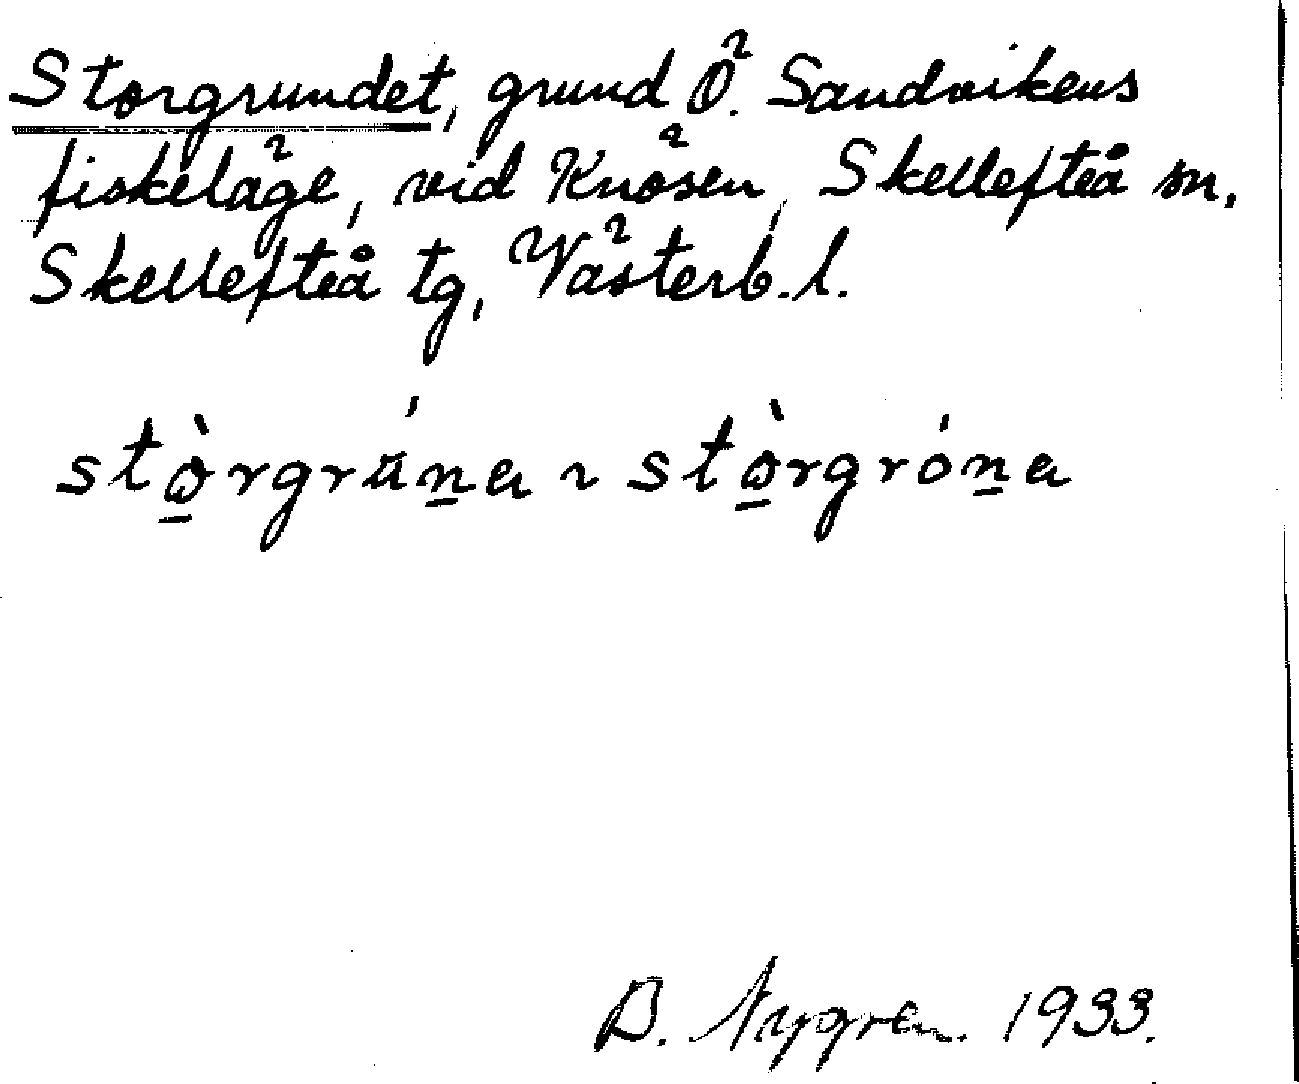 Storgrundet, grund Ö. Sandvikens
fiskeläge, vid Knösen, Skellefteå sn,
Skellefteå tg, Västerb. l.
stò̱rgrú̈ṉa ~ stò̱rgróṉa
B. Nygren. 1933.